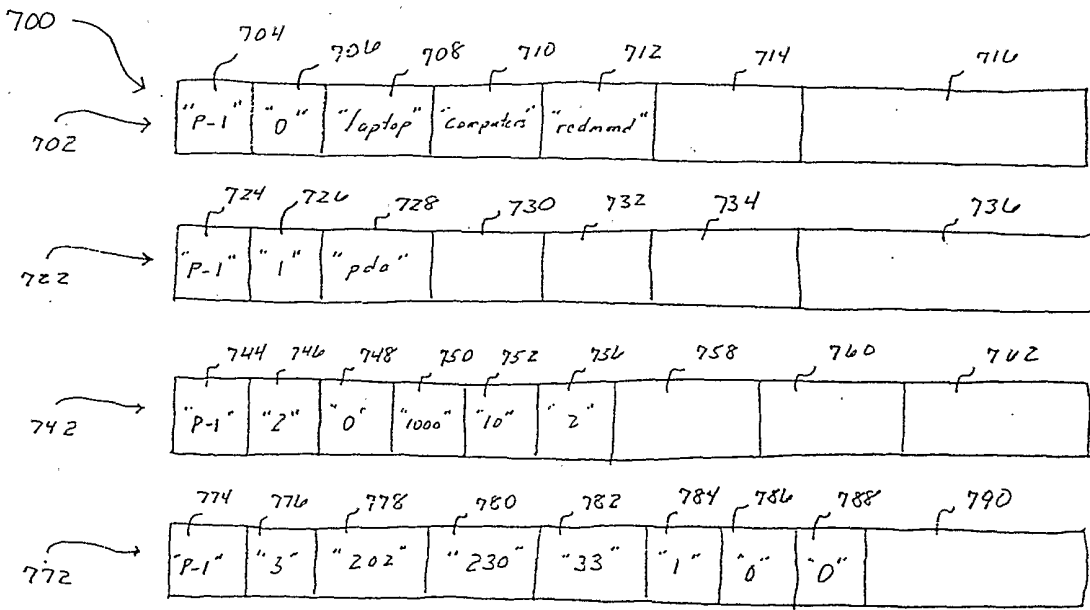 700
704 706 708 710 712 714 716
702 "P-1" "0" "laptop" "computers" "redmmd"
724 726 728 730 732 734 736
722 "P-1" "1" "pda"
744 746 748 750 752 756 758 760 762
742 "P-1" "2" "0" "1000" "10" "2"
774 776 778 780 782 784 786 788 790
772 "P-1" "3" "202" "230" "33" "1" "0" "0"